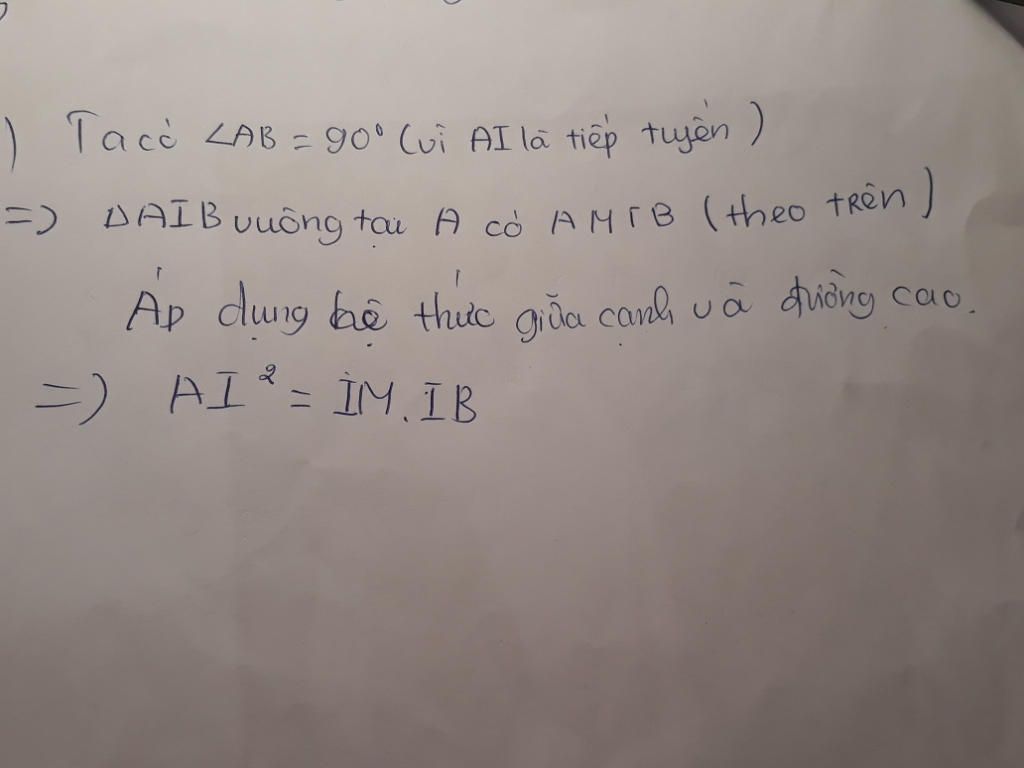 ) Ta có ∠AB = 90° (vì AI là tiếp tuyến)
=> ΔAIB vuông tại A có AMIB (theo trên)
Áp dụng hệ thức giữa cạnh và đường cao.
=> AI² = IM.IB